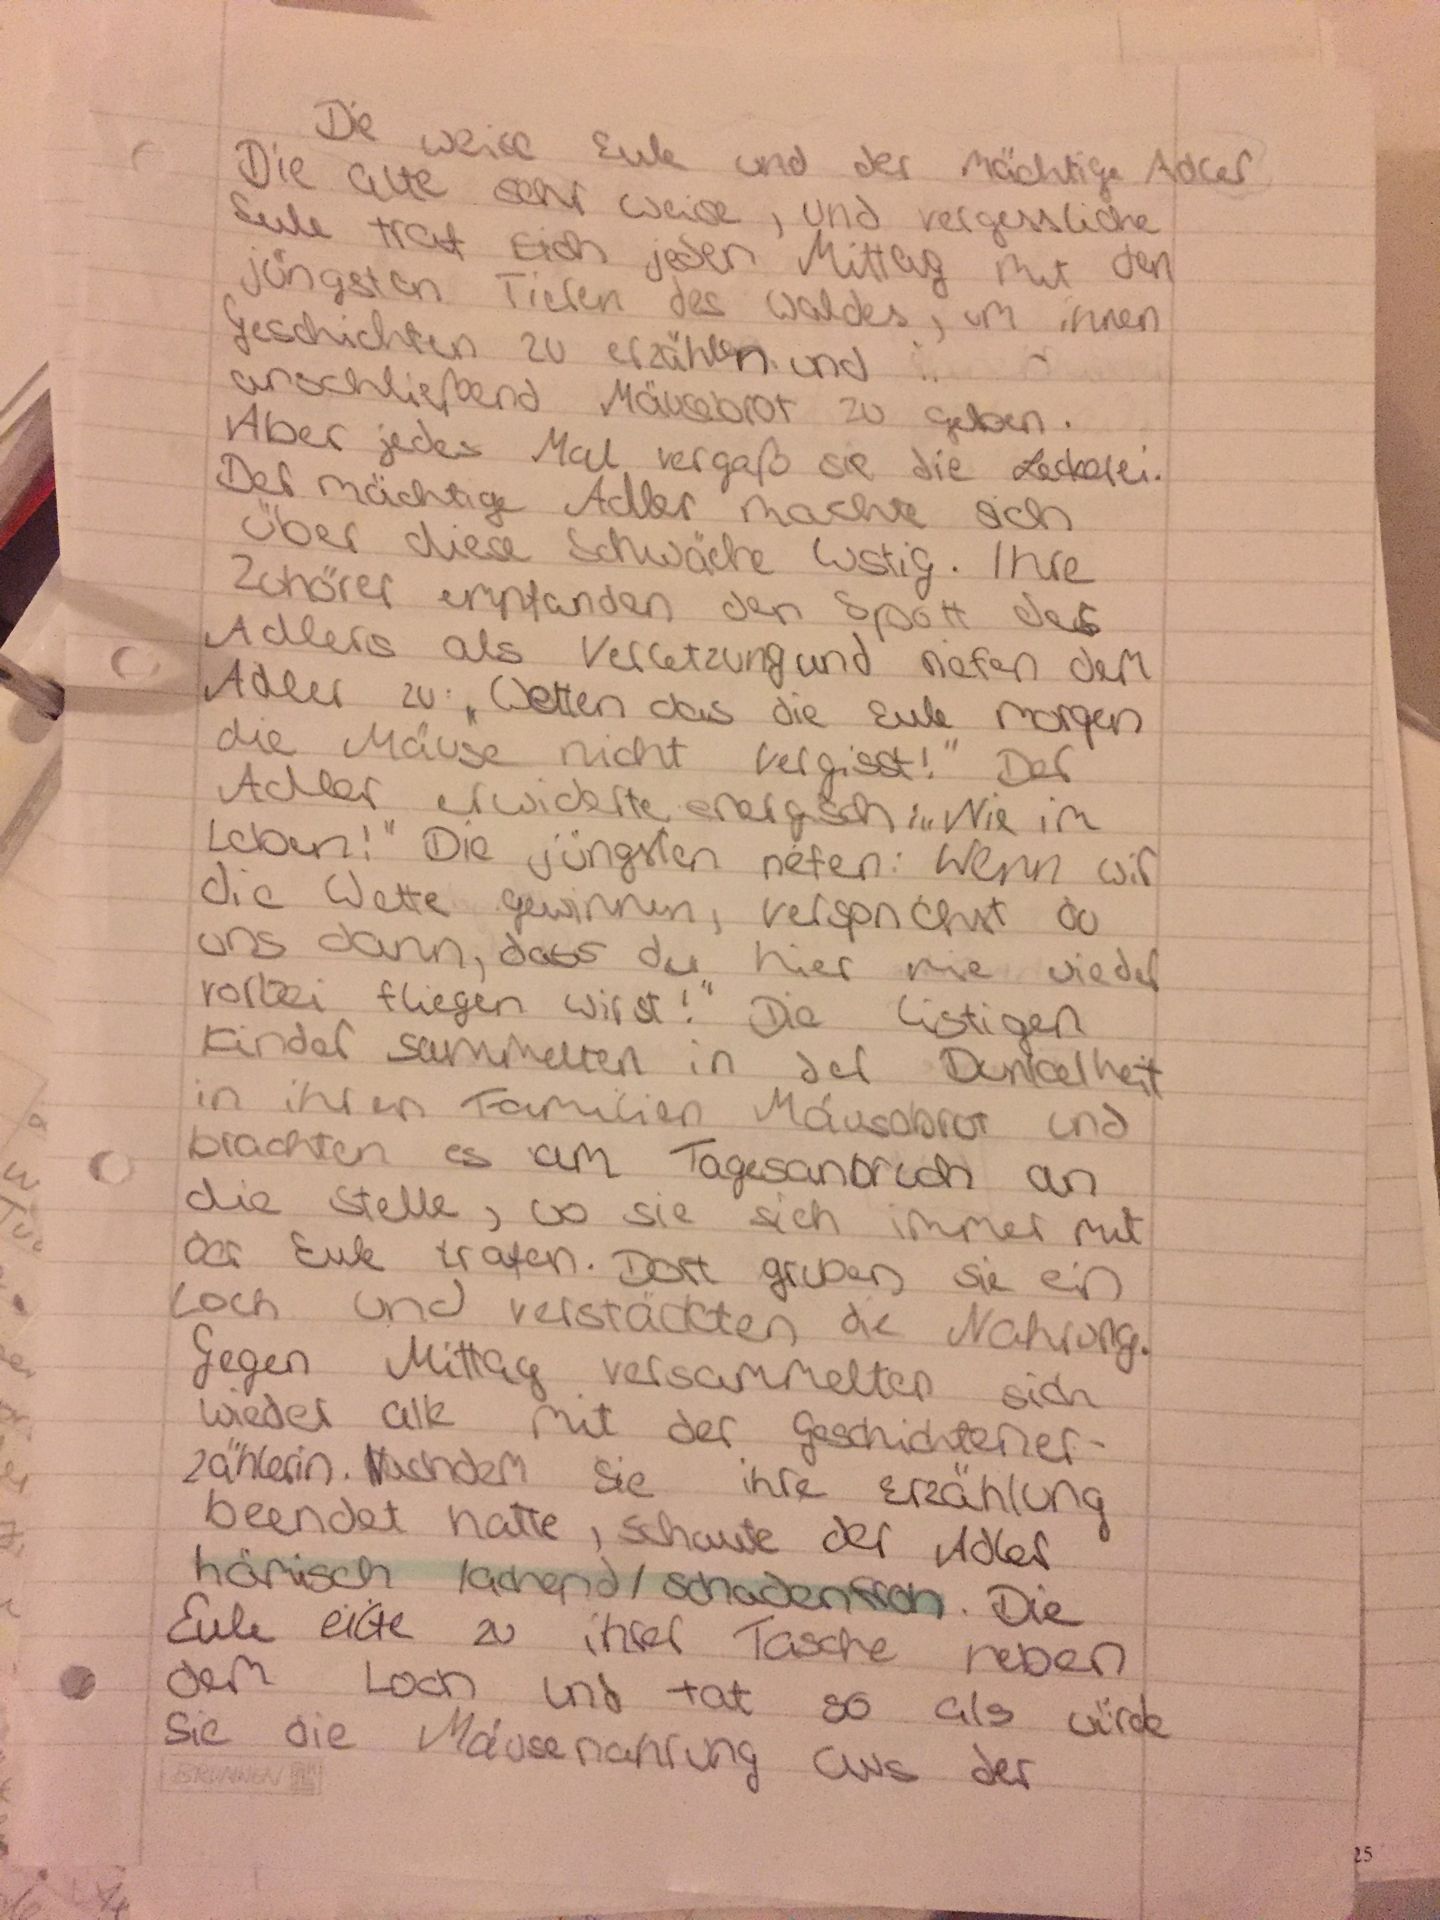 Die weise Eule und der mächtige Adler
Die alte sehr weise, und vergessliche
Eule traf sich jeden Mittag mit den
jüngsten Tieren des Waldes, um ihnen
Geschichten zu erzählen und
anschließend Mäusebrot zu geben.
Aber jedes Mal vergaß sie die Leckerei.
Der mächtige Adler machte sich
über diese Schwäche lustig. Ihre
Zuhörer empfanden den Spott des
Adlers als Verletzung und riefen dem
Adler zu: „Wetten das die Eule morgen
die Mäuse nicht vergisst!" Der
Adler erwiderte energisch: „Nie im
Leben!" Die jüngsten riefen: Wenn wir
die Wette gewinnen, versprichst du
uns dann, dass du hier nie wieder
vorbei fliegen wirst!" Die listigen
Kinder sammelten in der Dunkelheit
in ihren Familien Mäusebrot und
brachten es am Tagesanbruch an
die Stelle, wo sie sich immer mit
der Eule trafen. Dort gruben sie ein
Loch und verstäckten die Nahrung.
Gegen Mittag versammelten sich
wieder alle mit der Geschichtener-
zählerin. Nachdem sie ihre Erzählung
beendet hatte, schaute der Adler
hämisch lachend/schadenfroh. Die
Eule eilte zu ihrer Tasche neben
dem Loch und tat so als würde
sie die Mäusenahrung aus der
BRUNNEN
25